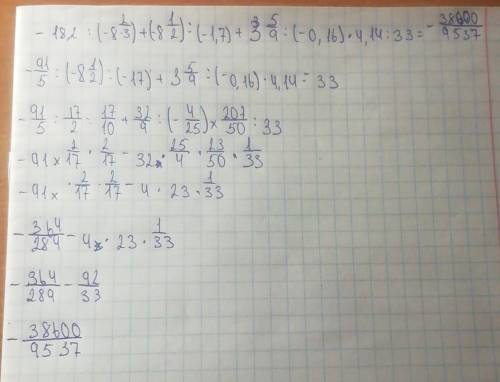 - 18,2 : (-8 2/3) + (-8 1/2) : (-1,7) + 3 5/9 : (-0,16) · 4,14 : 33 = - 38600/9537
- 91/5 : (-8 1/2) : (-17) + 3 5/9 : (-0,16) · 4,14 = 33
- 91/5 : 17/2 : 17/10 + 32/9 : (- 4/25) × 207/50 : 33
- 91 × 2/17 · 2/17 - 32 × · 25/4 · 23/50 · 1/33
- 91 × · 2/17 · 2/17 - 4 · 23 · 1/33
- 364/289 - 4 · 23 · 1/33
- 364/289 - 92/33
- 38600/9537